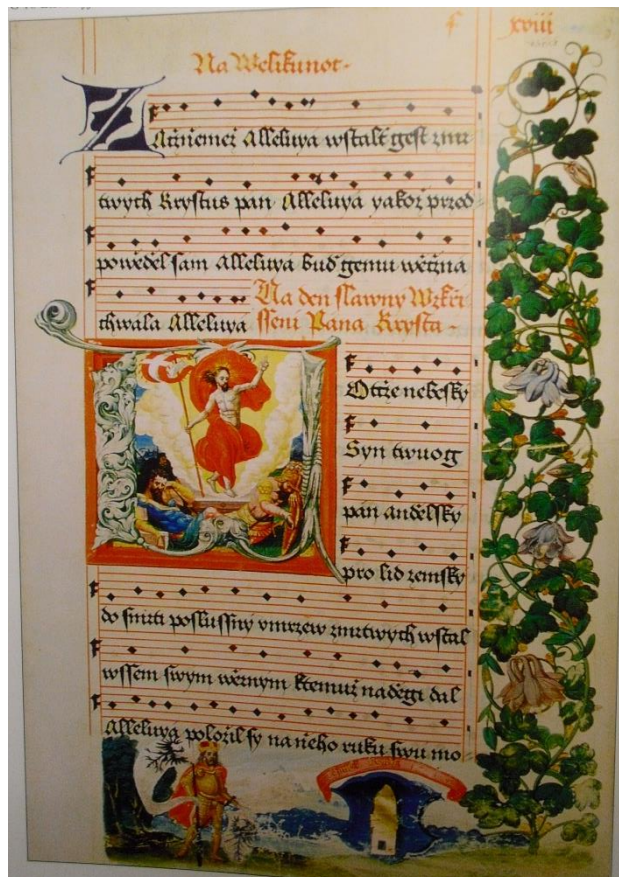 xviii
Na Welikunot
Začniemež Alleluya wstalt gest zmr
twych Krystus pan Alleluya yakož przed
powěděl sam Alleluya Bud gemu wěčzna
chwala Alleluya
Na den slawny Wzkři
sseni Pana Krysta
Otcže nebesky
Syn twuog
pán andělsky
pro lid zemsky
do smrti poslussny vmrzew zmrtwych wstal
wssem swym wěrnym ktemuž naděgi dal
Alleluya položil sy na něho ruku swu mo